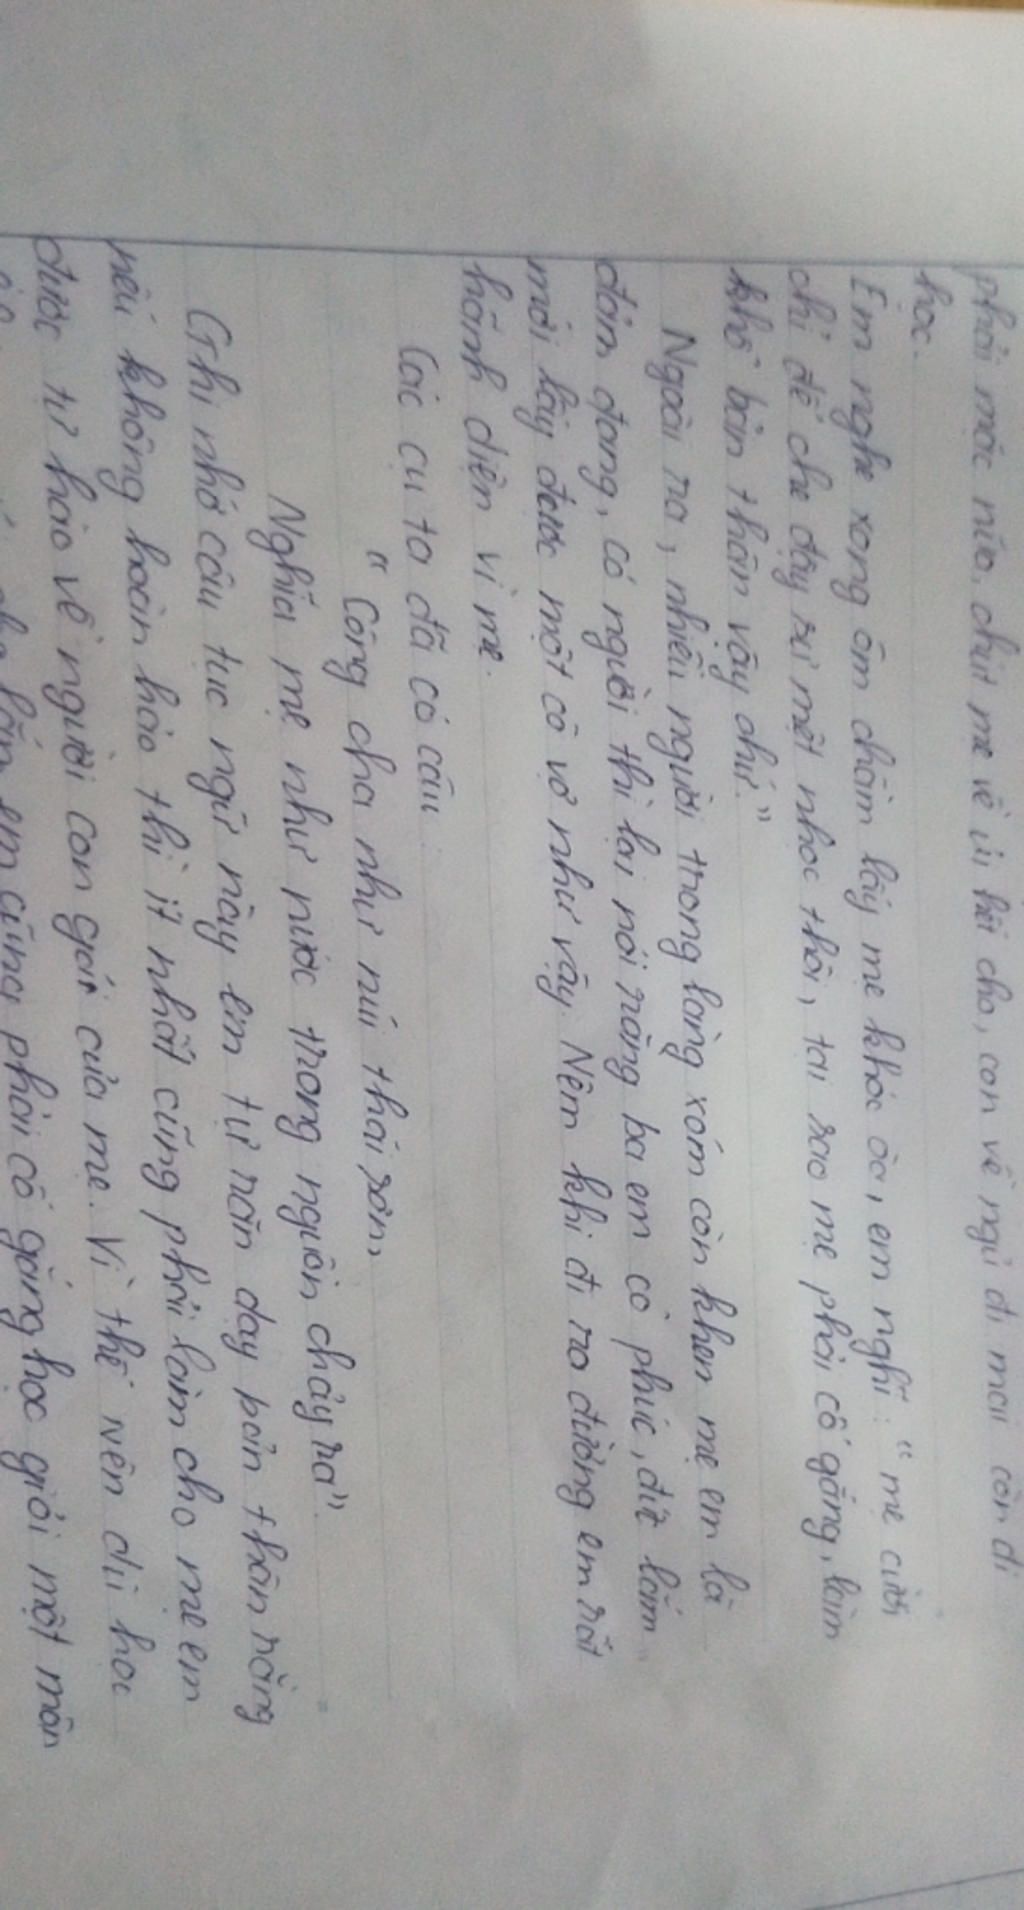 phải mặc nữa, chút mẹ về ủi hết cho, con về ngủ đi mai còn đi
học.
Em nghe xong ôm chầm lấy mẹ khóc òa, em nghĩ: "mẹ cười
chỉ để che đậy sự mệt nhọc thôi, tại sao mẹ phải cố gắng, làm
khổ bản thân vậy chứ."
Ngoài ra, nhiều người trong làng xóm còn khen mẹ em là
đảm đang, có người thì lại nói rằng ba em có phúc, đức lắm
mới lấy được một cô vợ như vậy. Nêm khi đi ra đường em rất
hãnh diện vì mẹ.
Các cụ ta đã có câu:
"Công cha như núi thái sơn,
Nghĩa mẹ như nước trong nguồn chảy ra".
Ghi nhớ câu tục ngữ này em tự răn dạy bản thân rằng
nếu không hoàn hảo thì ít nhất cũng phải làm cho mẹ em
được tự hào về người con gái của mẹ. Vì thế nên dù học
em cũng phải cố gắng học giỏi một môn